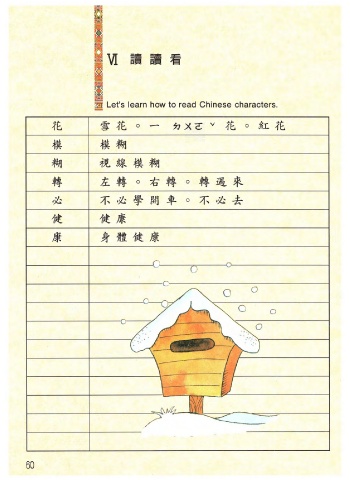 Ⅵ 讀讀看
Let's learn how to read Chinese characters.
花 雪花。一ㄉㄨㄛˇ花。紅花
模 模糊
糊 視線模糊
轉 左轉。右轉。轉過來
必 不必學開車。不必去
健 健康
康 身體健康
60